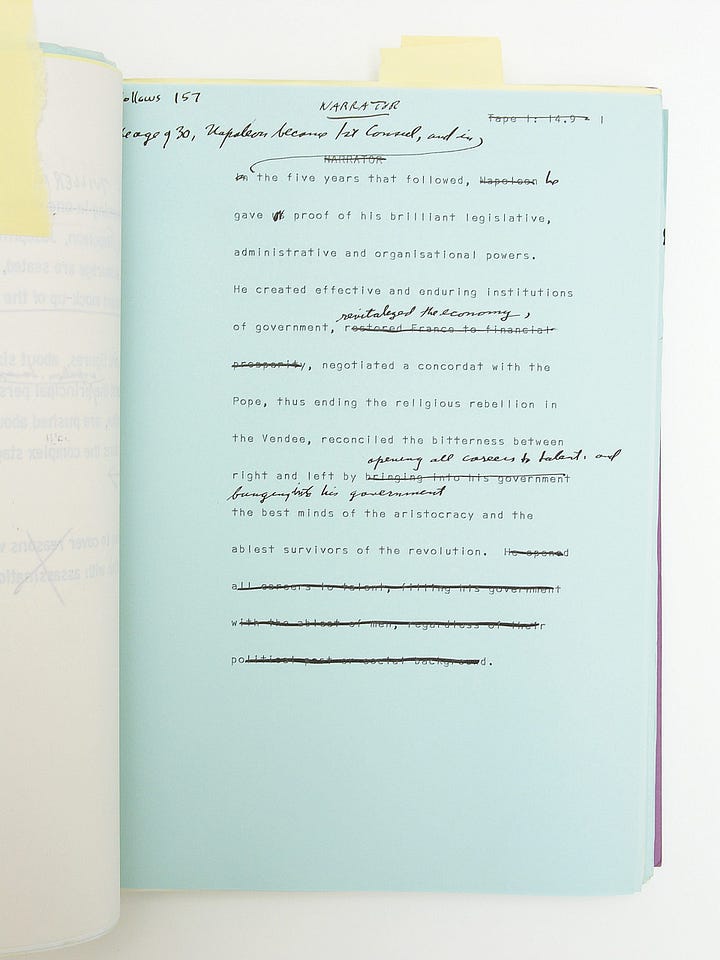 ollows 157
NARRATOR
Tape 1: 14.9 - 1
age of 30, Napoleon becomes 1st Consul, and in
NARRATOR
In the five years that followed, Napoleon he
gave proof of his brilliant legislative,
administrative and organisational powers.
He created effective and enduring institutions
revitalized the economy,
of government, restored France to financial
prosperity, negotiated a concordat with the
Pope, thus ending the religious rebellion in
the Vendee, reconciled the bitterness between
opening all careers to talent, and
right and left by bringing into his government
bringing into his government
the best minds of the aristocracy and the
ablest survivors of the revolution. He opened
all careers to talent, filling his government
with the ablest of men, regardless of their
political past or social background.